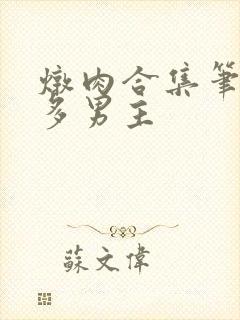 燉肉合集筆
多男主
蘇文偉